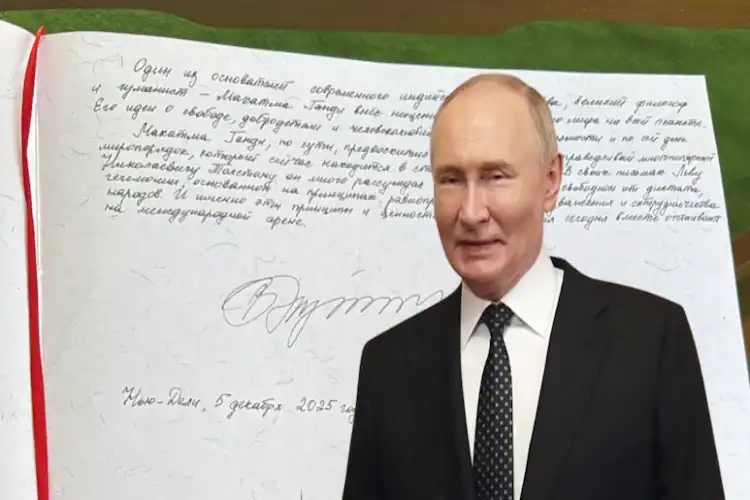 Один из основателей современного индийс ва, великий философ
и гуманист – Махатма Ганди внёс неоцени ло мира на всей планете.
Его идеи о свободе, добродетели и человеколюбии ности и по сей день
Махатма Ганди, по сути, предвосхитил праведливый многополярный
миропорядок, который сейчас находится в ст В своих письмах Льву
Николаевичу Толстому он много рассуждал свободном от диктата,
гегемонии, основанном на принципах равнопр важения и сотрудничества
народов. И именно эти принципы и ценност я сегодня вместе отстаивают
на международной арене.
Нью-Дели, 5 декабря 2025 год